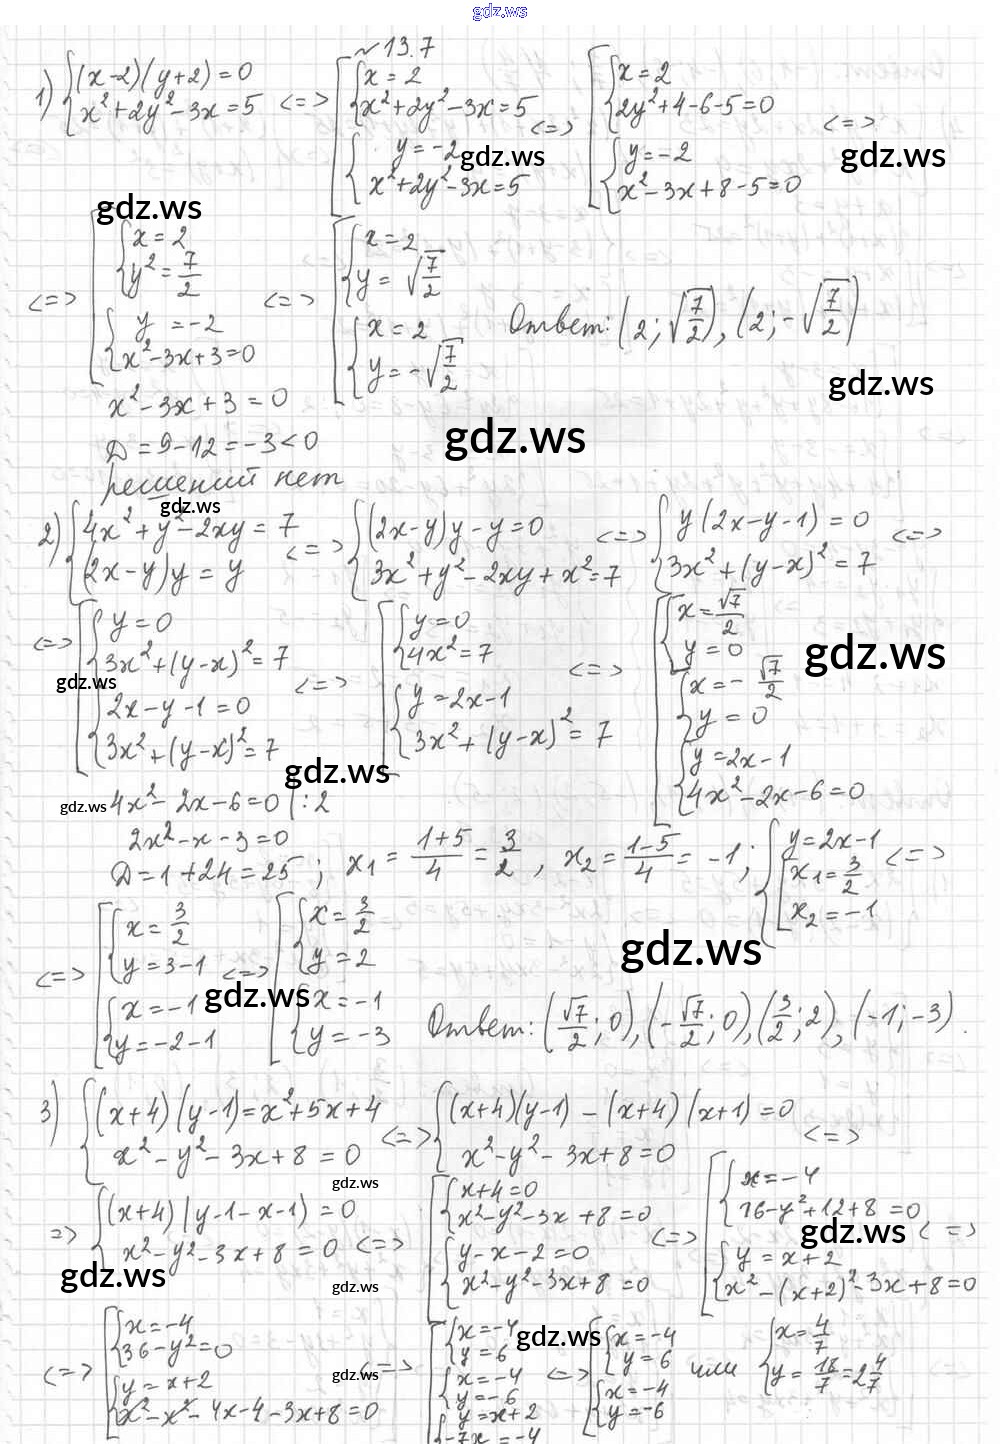 gdz.ws
№ 13.7
1) { (x-2)(y+2) = 0 ; x²+2y²-3x=5 <=> [ { x = 2 ; x²+2y²-3x=5 { y=-2 ; x²+2y²-3x=5 <=> [ { x=2 ; 2y²+4-6-5=0 { y=-2 ; x²-3x+8-5=0 <=>
gdz.ws gdz.ws gdz.ws
<=> [ { x=2 ; y²=7/2 { y=-2 ; x²-3x+3=0 <=> [ { x=2 ; y=√(7/2) { x=2 ; y=-√(7/2) Ответ: (2; √(7/2)), (2; -√(7/2))
gdz.ws
x²-3x+3=0
D=9-12=-3<0
gdz.ws
решений нет
gdz.ws
2) { 4x²+y²-2xy=7 ; (2x-y)y=y <=> { (2x-y)y-y=0 ; 3x²+y²-2xy+x²=7 <=> { y(2x-y-1)=0 ; 3x²+(y-x)²=7 <=>
<=> [ { y=0 ; 3x²+(y-x)²=7 { 2x-y-1=0 ; 3x²+(y-x)²=7 <=> [ { y=0 ; 4x²=7 { y=2x-1 ; 3x²+(y-x)²=7 <=> [ { x=√7/2 ; y=0 { x=-√7/2 ; y=0 { y=2x-1 ; 4x²-2x-6=0
gdz.ws gdz.ws gdz.ws
gdz.ws 4x²-2x-6=0 |:2
2x²-x-3=0
D=1+24=25 ; x₁ = (1+5)/4 = 3/2 , x₂ = (1-5)/4 = -1 ; { y=2x-1 [ x₁=3/2 ; x₂=-1 <=>
gdz.ws
<=> [ { x=3/2 ; y=3-1 { x=-1 ; y=-2-1 <=> [ { x=3/2 ; y=2 { x=-1 ; y=-3 Ответ: (√7/2; 0), (-√7/2; 0), (3/2; 2), (-1; -3).
gdz.ws
3) { (x+4)(y-1)=x²+5x+4 ; x²-y²-3x+8=0 <=> { (x+4)(y-1)-(x+4)(x+1)=0 ; x²-y²-3x+8=0 <=>
gdz.ws
=> { (x+4)(y-1-x-1)=0 ; x²-y²-3x+8=0 <=> [ { x+4=0 ; x²-y²-3x+8=0 { y-x-2=0 ; x²-y²-3x+8=0 <=> [ { x=-4 ; 16-y²+12+8=0 { y=x+2 ; x²-(x+2)²-3x+8=0 <=>
gdz.ws gdz.ws gdz.ws
<=> [ { x=-4 ; 36-y²=0 { y=x+2 ; x²-x²-4x-4-3x+8=0 <=> [ { x=-4 ; y=6 { x=-4 ; y=-6 { y=x+2 ; -7x=-4 <=> [ { x=-4 ; y=6 { x=-4 ; y=-6 или { x=4/7 ; y=18/7=2 4/7
gdz.ws gdz.ws